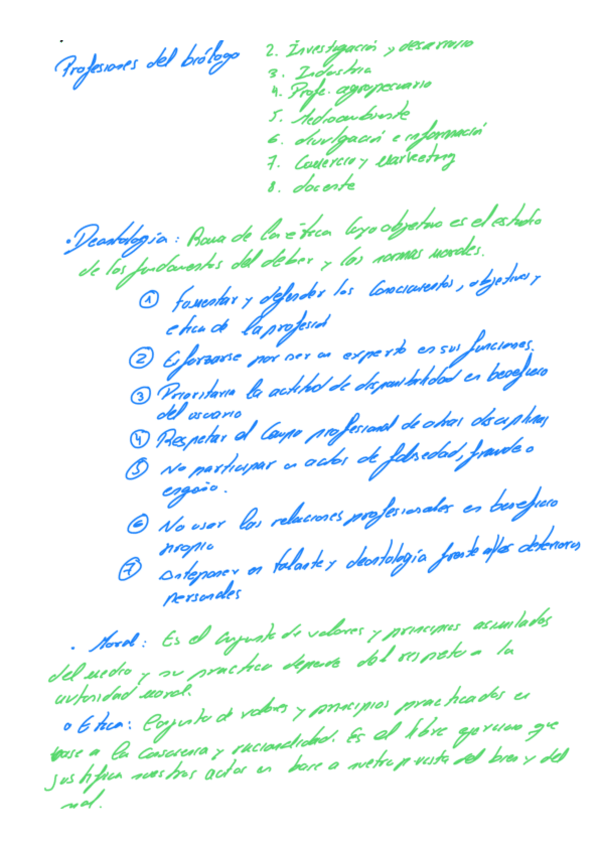 Profesiones del biólogo
2. Investigación y desarrollo
3. Industria
4. Profe. agropecuario
5. Medioambiente
6. divulgación e información
7. Comercio y Marketing
8. docente
• Deontología: Rama de la ética cuyo objetivo es el estudio
de los fundamentos del deber y las normas morales.
① Fomentar y defender los conocimientos, objetivos y
ética de la profesión
② Esforzarse por ser un experto en sus funciones.
③ Prioritaria la actitud de disponibilidad en beneficio
del usuario
④ Respetar el campo profesional de otras disciplinas
⑤ No participar en actos de falsedad, fraude o
engaño.
⑥ No usar las relaciones profesionales en beneficio
propio
⑦ Anteponer talante y deontología frente
personales
• Moral: Es el conjunto de valores y principios asimilados
del medio y su practica depende del respeto a la
autoridad moral.
o Etica: Conjunto de valores y principios practicados en
base a la consciencia y racionalidad. Es el libre ejercicio que
justifica nuestros actos en base a del bien y del
mal.